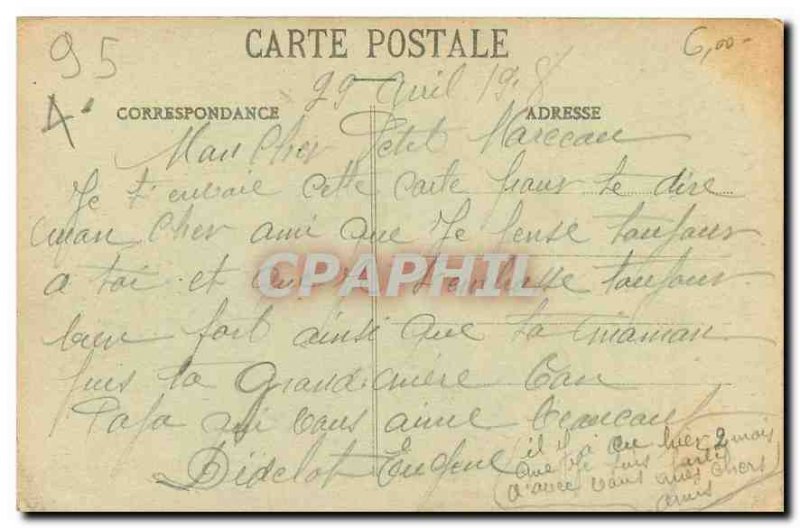 95
CARTE POSTALE
6,00-
29 avril 198
A
CORRESPONDANCE
ADRESSE
Mon Cher Petit Marceau
Je t'envoie cette carte pour te dire
mon Cher ami que Je pense toujour
a toi et que Je t'embrasse toujour
CPAPHIL
bien fort ainsi que ta maman
puis ta Grand mère ton
Papa qui vous aime beaucoup
Didelot Eugene
il y a eu hier 2 mois
que je suis parti
d'avec vous mes chers
amis